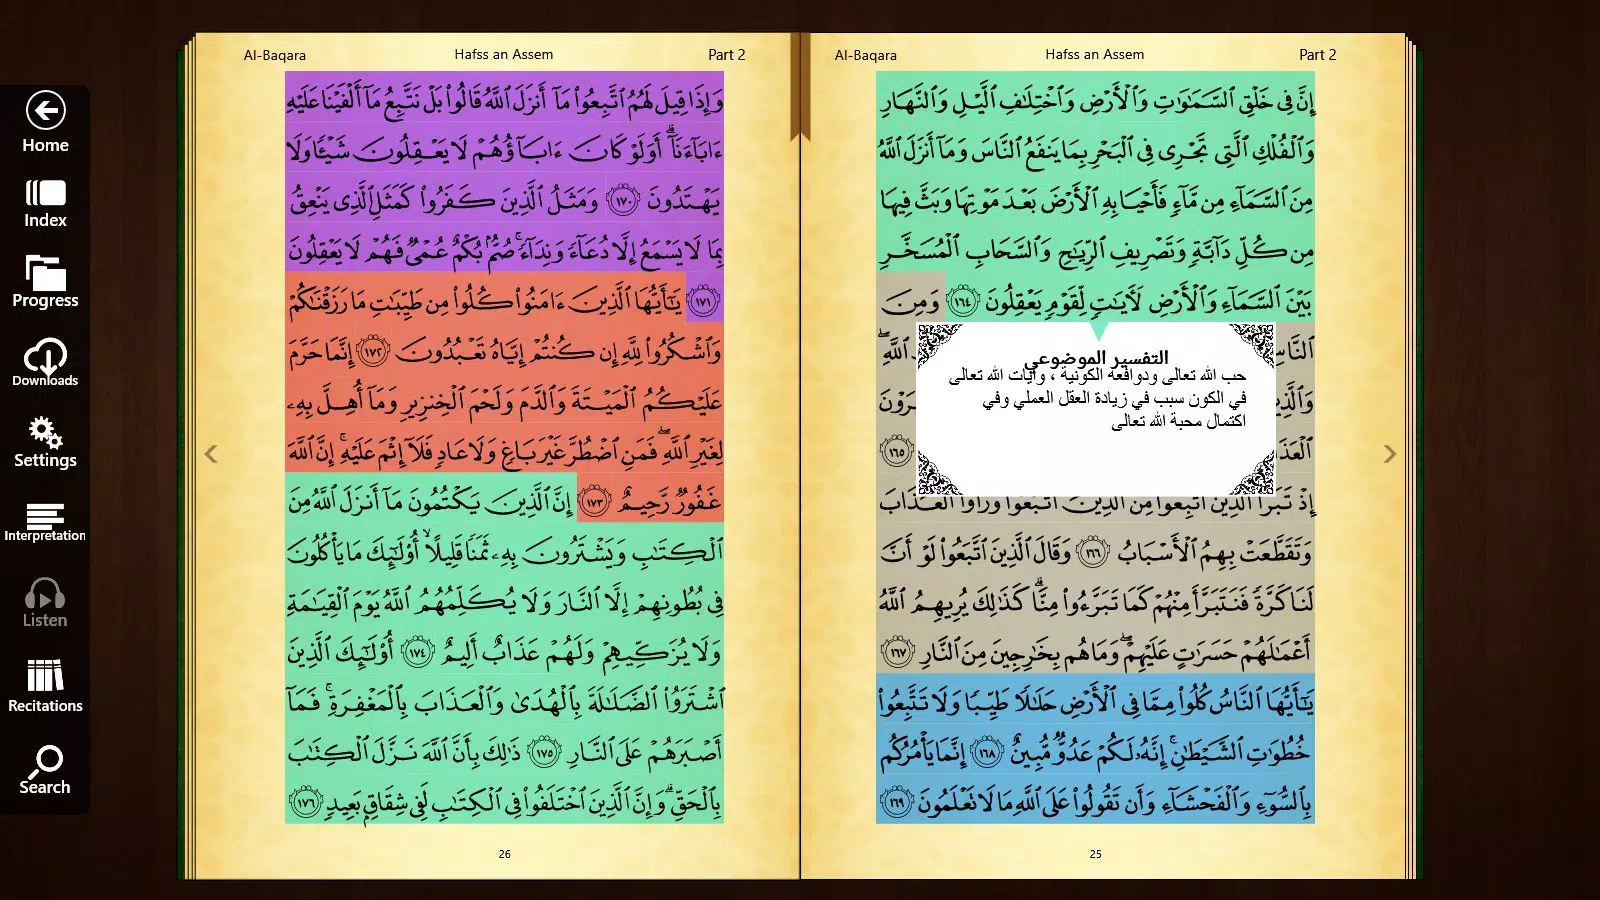 Home
Index
Progress
Downloads
Settings
Interpretation
Listen
Recitations
Search
Al-Baqara Hafss an Assem Part 2
إِنَّ فِى خَلْقِ ٱلسَّمَـٰوَٰتِ وَٱلْأَرْضِ وَٱخْتِلَـٰفِ ٱلَّيْلِ وَٱلنَّهَارِ
وَٱلْفُلْكِ ٱلَّتِى تَجْرِى فِى ٱلْبَحْرِ بِمَا يَنفَعُ ٱلنَّاسَ وَمَآ أَنزَلَ ٱللَّهُ
مِنَ ٱلسَّمَآءِ مِن مَّآءٍ فَأَحْيَا بِهِ ٱلْأَرْضَ بَعْدَ مَوْتِهَا وَبَثَّ فِيهَا
مِن كُلِّ دَآبَّةٍ وَتَصْرِيفِ ٱلرِّيَـٰحِ وَٱلسَّحَابِ ٱلْمُسَخَّرِ
بَيْنَ ٱلسَّمَآءِ وَٱلْأَرْضِ لَـَٔايَـٰتٍ لِّقَوْمٍ يَعْقِلُونَ ١٦٤ وَمِنَ
ٱللَّهِ ۖ
التفسير الموضوعي
حب الله تعالى ودوافعه الكونية ، وآيات الله تعالى
في الكون سبب في زيادة العقل العملي وفي
اكتمال محبة الله تعالى
١٦٥
إِذْ تَبَرَّأَ ٱلَّذِينَ ٱتُّبِعُوا۟ مِنَ ٱلَّذِينَ ٱتَّبَعُوا۟ وَرَأَوُا۟ ٱلْعَذَابَ
وَتَقَطَّعَتْ بِهِمُ ٱلْأَسْبَابُ ١٦٦ وَقَالَ ٱلَّذِينَ ٱتَّبَعُوا۟ لَوْ أَنَّ
لَنَا كَرَّةً فَنَتَبَرَّأَ مِنْهُمْ كَمَا تَبَرَّءُوا۟ مِنَّا ۗ كَذَٰلِكَ يُرِيهِمُ ٱللَّهُ
أَعْمَـٰلَهُمْ حَسَرَٰتٍ عَلَيْهِمْ ۖ وَمَا هُم بِخَـٰرِجِينَ مِنَ ٱلنَّارِ ١٦٧
يَـٰٓأَيُّهَا ٱلنَّاسُ كُلُوا۟ مِمَّا فِى ٱلْأَرْضِ حَلَـٰلًا طَيِّبًا وَلَا تَتَّبِعُوا۟
خُطُوَٰتِ ٱلشَّيْطَـٰنِ ۚ إِنَّهُۥ لَكُمْ عَدُوٌّ مُّبِينٌ ١٦٨ إِنَّمَا يَأْمُرُكُم
بِٱلسُّوٓءِ وَٱلْفَحْشَآءِ وَأَن تَقُولُوا۟ عَلَى ٱللَّهِ مَا لَا تَعْلَمُونَ ١٦٩
25
Al-Baqara Hafss an Assem Part 2
وَإِذَا قِيلَ لَهُمُ ٱتَّبِعُوا۟ مَآ أَنزَلَ ٱللَّهُ قَالُوا۟ بَلْ نَتَّبِعُ مَآ أَلْفَيْنَا عَلَيْهِ
ءَابَآءَنَآ ۗ أَوَلَوْ كَانَ ءَابَآؤُهُمْ لَا يَعْقِلُونَ شَيْـًٔا وَلَا
يَهْتَدُونَ ١٧٠ وَمَثَلُ ٱلَّذِينَ كَفَرُوا۟ كَمَثَلِ ٱلَّذِى يَنْعِقُ
بِمَا لَا يَسْمَعُ إِلَّا دُعَآءً وَنِدَآءً ۚ صُمٌّۢ بُكْمٌ عُمْىٌ فَهُمْ لَا يَعْقِلُونَ
١٧١ يَـٰٓأَيُّهَا ٱلَّذِينَ ءَامَنُوا۟ كُلُوا۟ مِن طَيِّبَـٰتِ مَا رَزَقْنَـٰكُمْ
وَٱشْكُرُوا۟ لِلَّهِ إِن كُنتُمْ إِيَّاهُ تَعْبُدُونَ ١٧٢ إِنَّمَا حَرَّمَ
عَلَيْكُمُ ٱلْمَيْتَةَ وَٱلدَّمَ وَلَحْمَ ٱلْخِنزِيرِ وَمَآ أُهِلَّ بِهِۦ
لِغَيْرِ ٱللَّهِ ۖ فَمَنِ ٱضْطُرَّ غَيْرَ بَاغٍ وَلَا عَادٍ فَلَآ إِثْمَ عَلَيْهِ ۚ إِنَّ ٱللَّهَ
غَفُورٌ رَّحِيمٌ ١٧٣ إِنَّ ٱلَّذِينَ يَكْتُمُونَ مَآ أَنزَلَ ٱللَّهُ مِنَ
ٱلْكِتَـٰبِ وَيَشْتَرُونَ بِهِۦ ثَمَنًا قَلِيلًا ۙ أُو۟لَـٰٓئِكَ مَا يَأْكُلُونَ
فِى بُطُونِهِمْ إِلَّا ٱلنَّارَ وَلَا يُكَلِّمُهُمُ ٱللَّهُ يَوْمَ ٱلْقِيَـٰمَةِ
وَلَا يُزَكِّيهِمْ وَلَهُمْ عَذَابٌ أَلِيمٌ ١٧٤ أُو۟لَـٰٓئِكَ ٱلَّذِينَ
ٱشْتَرَوُا۟ ٱلضَّلَـٰلَةَ بِٱلْهُدَىٰ وَٱلْعَذَابَ بِٱلْمَغْفِرَةِ ۚ فَمَآ
أَصْبَرَهُمْ عَلَى ٱلنَّارِ ١٧٥ ذَٰلِكَ بِأَنَّ ٱللَّهَ نَزَّلَ ٱلْكِتَـٰبَ
بِٱلْحَقِّ ۗ وَإِنَّ ٱلَّذِينَ ٱخْتَلَفُوا۟ فِى ٱلْكِتَـٰبِ لَفِى شِقَاقٍۭ بَعِيدٍ ١٧٦
26